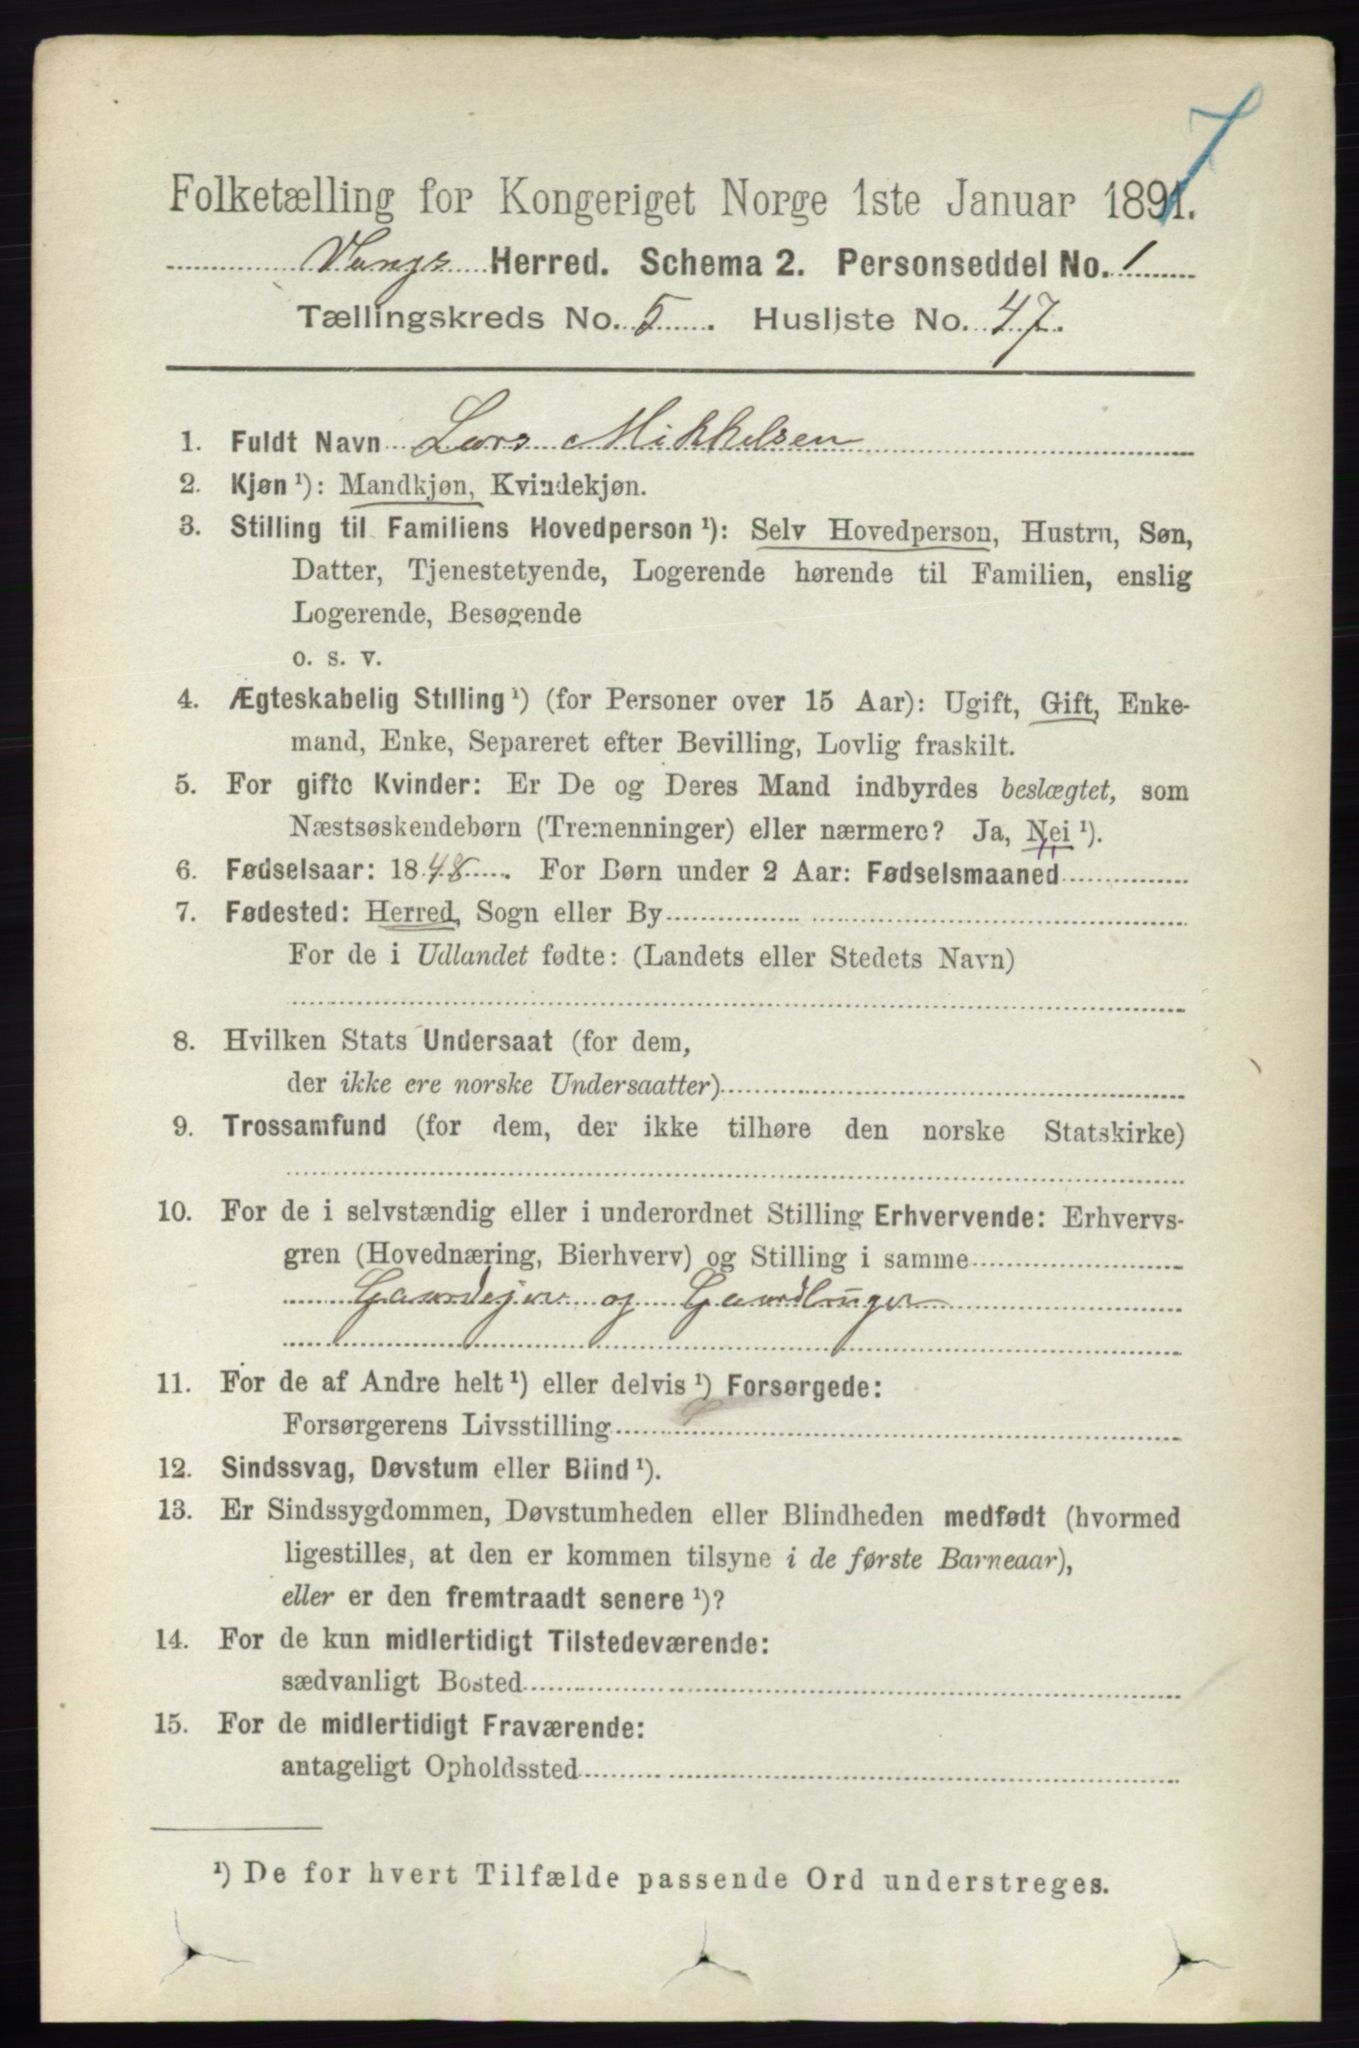 7
Folketælling for Kongeriget Norge 1ste Januar 1891.
Vangs Herred. Schema 2. Personseddel No. 1
Tællingskreds No. 5. Husliste No. 47.
1. Fuldt Navn Lars Mikkelsen
2. Kjøn ¹): Mandkjøn, Kvindekjøn.
3. Stilling til Familiens Hovedperson ¹): Selv Hovedperson, Hustru, Søn,
Datter, Tjenestetyende, Logerende hørende til Familien, enslig
Logerende, Besøgende
o. s. v.
4. Ægteskabelig Stilling ¹) (for Personer over 15 Aar): Ugift, Gift, Enke-
mand, Enke, Separeret efter Bevilling, Lovlig fraskilt.
5. For gifte Kvinder: Er De og Deres Mand indbyrdes beslægtet, som
Næstsøskendebørn (Tremenninger) eller nærmere? Ja, Nei ¹).
6. Fødselsaar: 1848. For Børn under 2 Aar: Fødselsmaaned
7. Fødested: Herred, Sogn eller By
For de i Udlandet fødte: (Landets eller Stedets Navn)
8. Hvilken Stats Undersaat (for dem,
der ikke ere norske Undersaatter)
9. Trossamfund (for dem, der ikke tilhøre den norske Statskirke)
10. For de i selvstændig eller i underordnet Stilling Erhvervende: Erhvervs-
gren (Hovednæring, Bierhverv) og Stilling i samme
Gaardejer og Gaardbruger
11. For de af Andre helt ¹) eller delvis ¹) Forsørgede:
Forsørgerens Livsstilling
12. Sindssvag, Døvstum eller Blind ¹).
13. Er Sindssygdommen, Døvstumheden eller Blindheden medfødt (hvormed
ligestilles, at den er kommen tilsyne i de første Barneaar),
eller er den fremtraadt senere ¹)?
14. For de kun midlertidigt Tilstedeværende:
sædvanligt Bosted
15. For de midlertidigt Fraværende:
antageligt Opholdssted
¹) De for hvert Tilfælde passende Ord understreges.